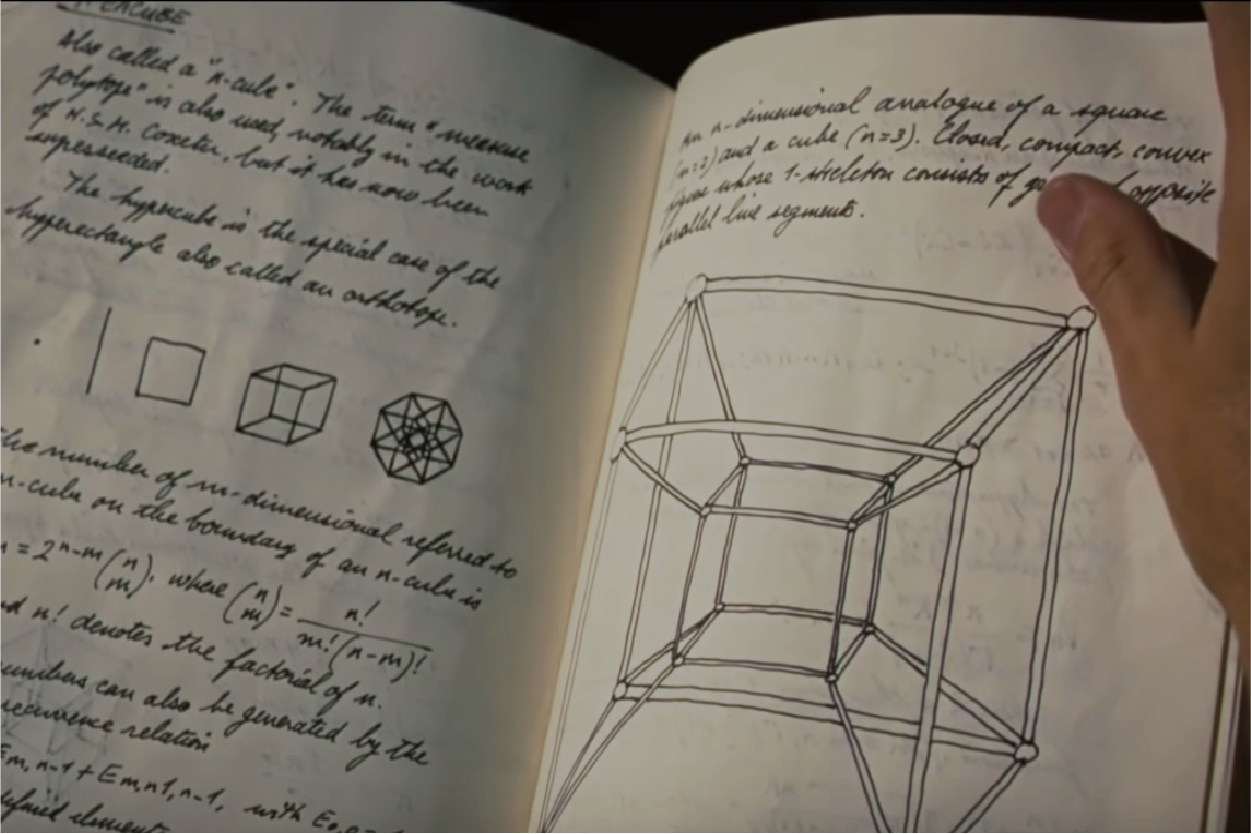 Also called a "n-cube". The term "measure
polytope" is also used, notably in the work
of H.S.M. Coxeter, but it has now been
superseeded.
The hypercube is the special case of the
hyperectangle also called an orthotope.
the number of m-dimensional referred to
n-cube on the boundary of an n-cube is
= 2^{n-m} (n m), where (n m) = n! / m!(n-m)!
n! denotes the factorial of n.
numbers can also be generated by the
recurrence relation
Em,n-1 + Em,n1,n-1, with E0,0
defined elements
An n-dimensional analogue of a square
(n=2) and a cube (n=3). Closed, compact, convex
figure whose 1-skeleton consists of opposite
parallel line segments.